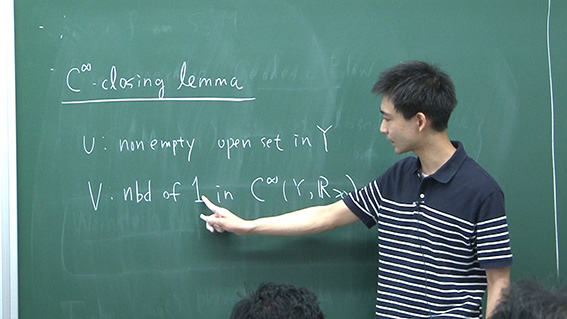 C∞-closing lemma
U: nonempty open set in Y
V: nbd of 1 in C∞(Y, ℝ>0)